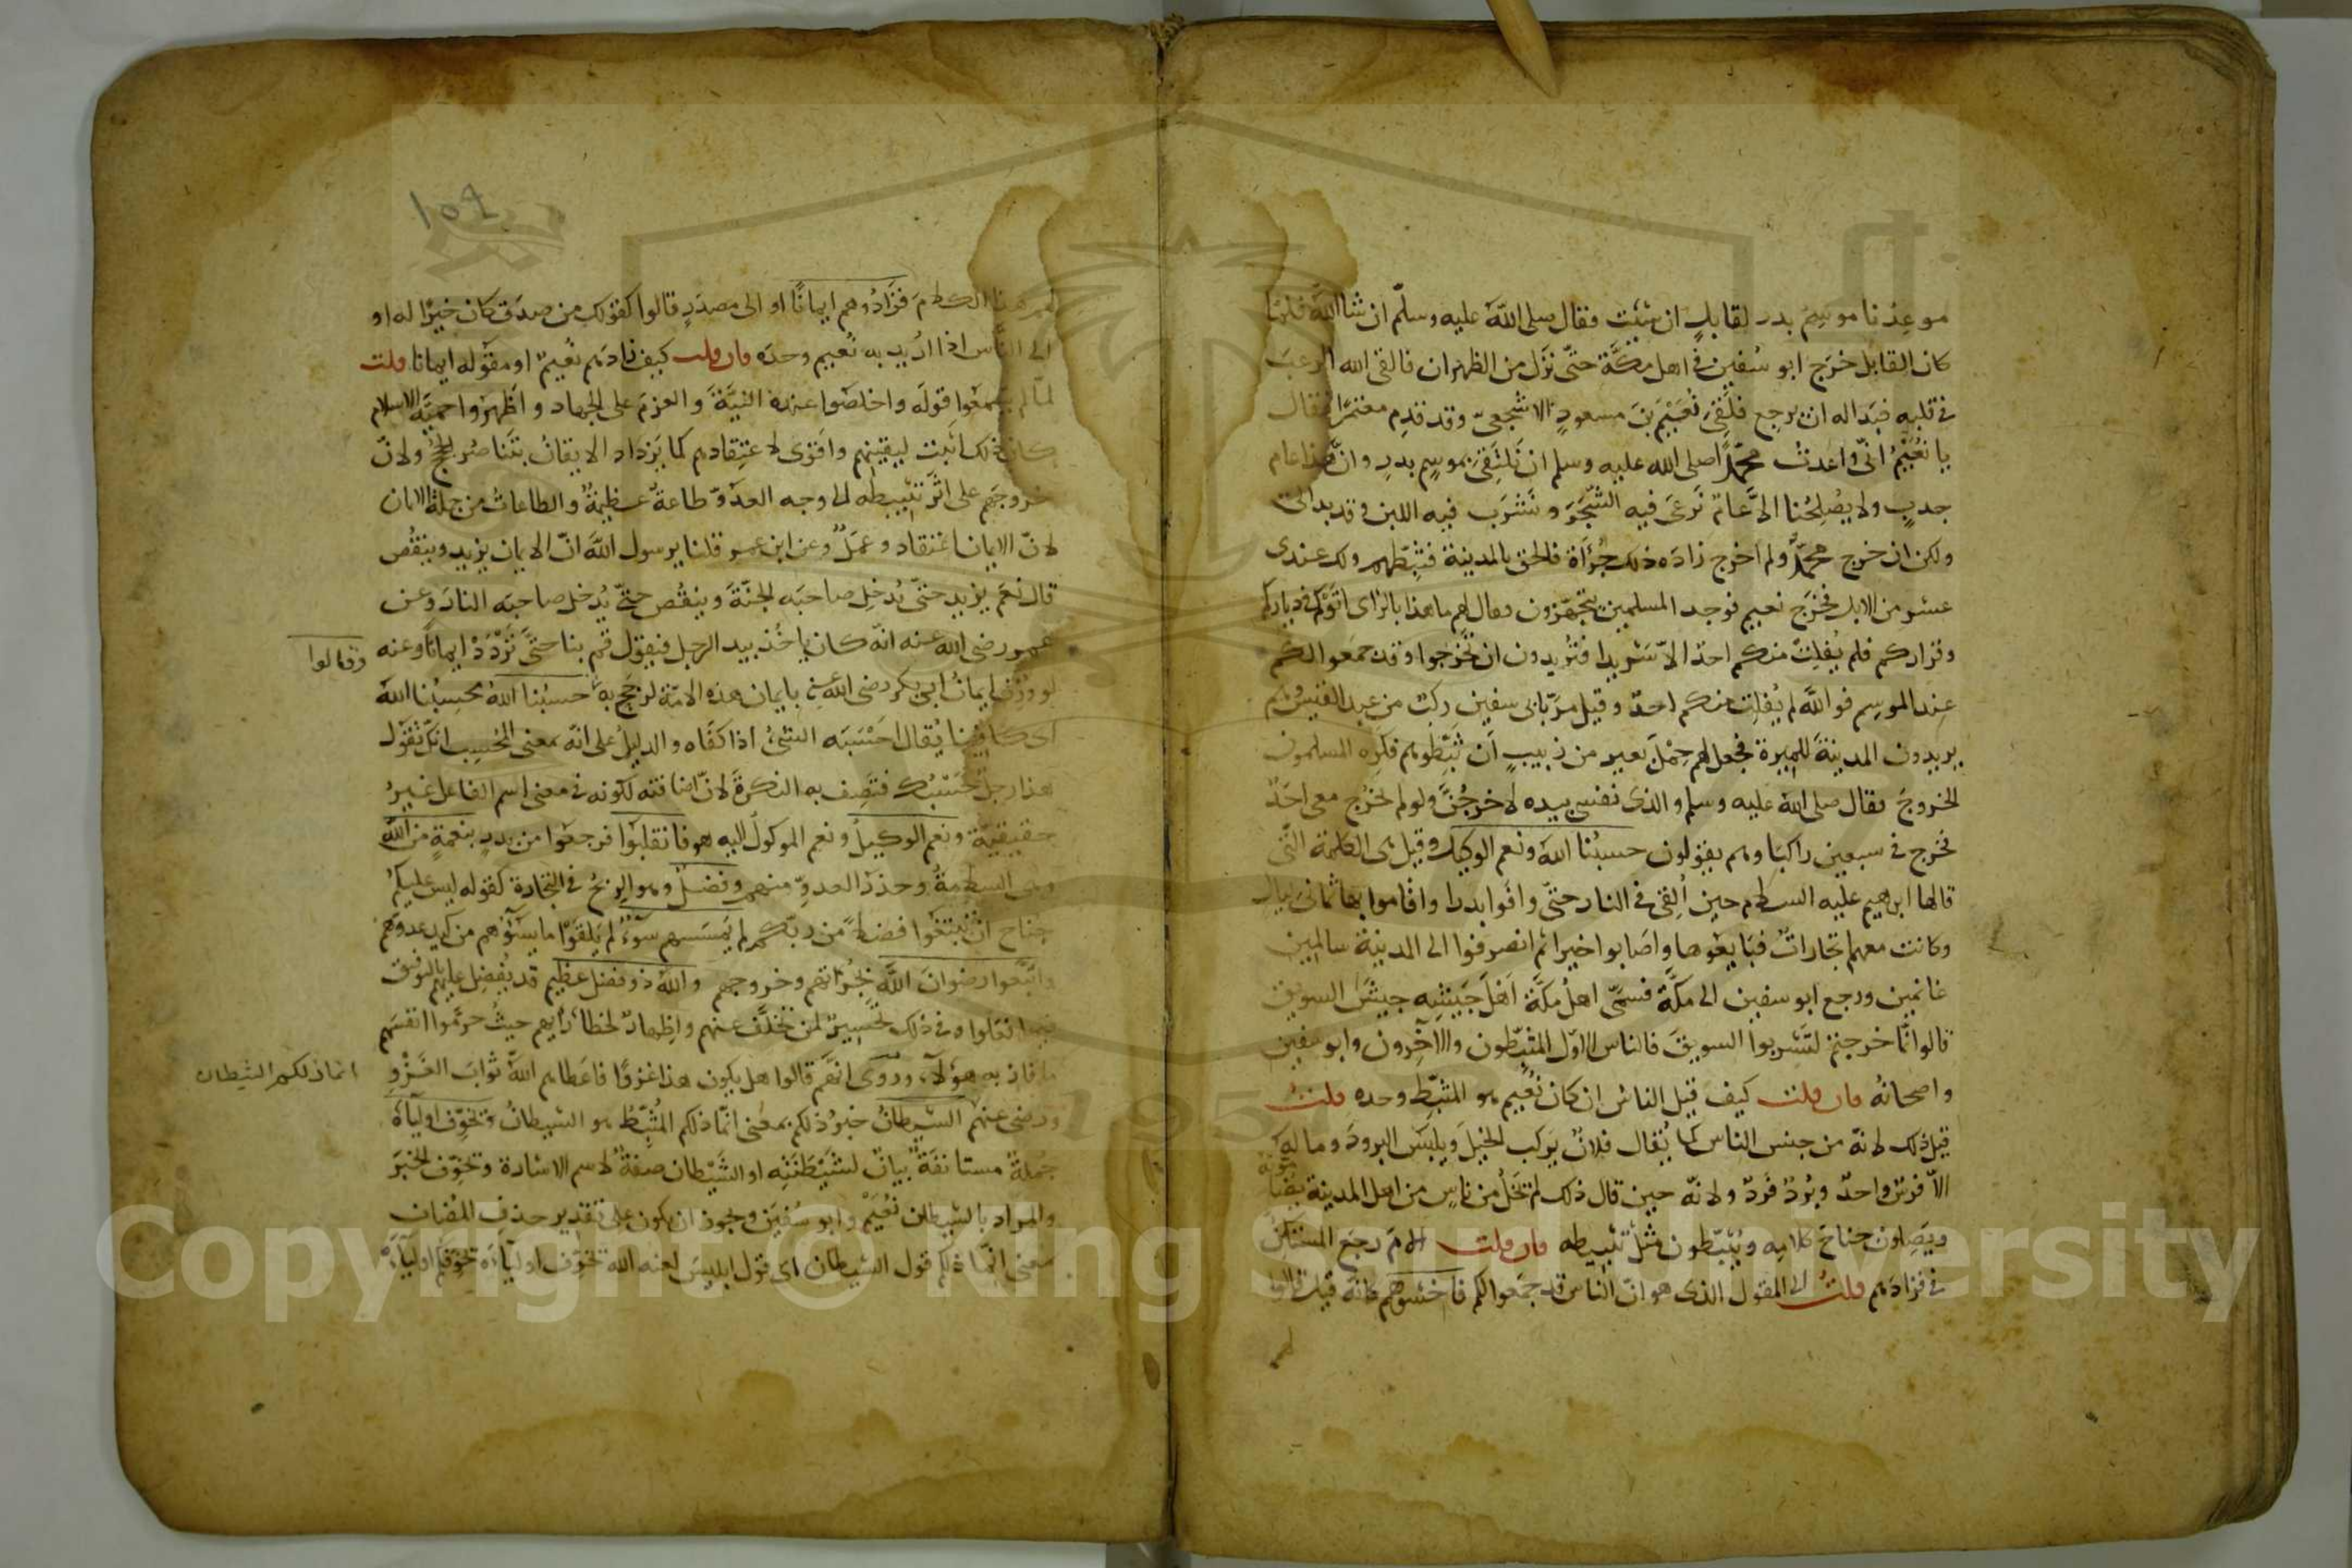 موعدنا موسم بدر لقابل ان شئت فقال صلى الله عليه وسلم ان شا الله فلما
كان القابل خرج ابو سفين فى اهل مكة حتى نزل من الظهران فالقى الله الرعب
فى قلبه فبدا له ان يرجع فلقى نعيم بن مسعود الاشجعى وقد قدم معتمرا فقال
يا نعيم انى واعدت محمدا صلى الله عليه وسلم ان نلتقى بموسم بدر وان هذا عام
جدب ولا يصلحنا الا عام نرعى فيه الشجر ونشرب فيه اللبن وقد بدا لى
ولكن ان خرج محمد ولم اخرج زاده ذلك جرأة فالحق بالمدينة فثبطهم ولك عندى
عشر من الابل فخرج نعيم فوجد المسلمين يتجهزون فقال لهم ما هذا بالراى اتوكم فى دياركم
وقراركم فلم يفلت منكم احد الا شريدا فتريدون ان تخرجوا وقد جمعوا لكم
عند الموسم فوالله لم يفلت منكم احد وقيل مر بابى سفين ركب من عبد القيس وهم
يريدون المدينة للميرة فجعل لهم حمل بعير من زبيب ان ثبطوهم فكره المسلمون
الخروج فقال صلى الله عليه وسلم والذى نفسى بيده لاخرجن ولو لم يخرج معى احد
فخرج فى سبعين راكبا وهم يقولون حسبنا الله ونعم الوكيل وقيل هى الكلمة التى
قالها ابرهيم عليه السلام حين القى فى النار حتى وافوا بدرا واقاموا بها ثمانى ليال
وكانت معهم تجارات فبايعوها واصابوا خيرا ثم انصرفوا الى المدينة سالمين
غانمين ورجع ابو سفين الى مكة فسمى اهل مكة اهل جيشه جيش السويق
قالوا انما خرجتم لتشربوا السويق فالناس الاول المثبطون والاخرون وابو سفين
واصحابه فان قلت كيف قيل الناس ان كان نعيم هو المثبط وحده قلت
قيل ذلك لانه من جنس الناس كما يقال فلان يركب الخيل ويلبس البرود وما له
الا فرس واحد وبرد فرد ولانه حين قال ذلك لم يخل من ناس من اهل المدينة
ويصلون جناح كلامه ويثبطون مثل تثبيطه فان قلت الام رجع المستكن
فى فزادهم قلت الى المقول الذى هو ان الناس قد جمعوا لكم فاخشوهم كانه قيل قالوا
لهم
١٥٩
لهم هذا الكلام فزادهم ايمانا او الى مصدر قالوا كقولك من صدق كان خيرا له او
الى الناس اذا اريد به نعيم وحده فان قلت كيف زادهم نعيم او مقوله ايمانا قلت
لما لم يسمعوا قوله واخلصوا عنده النية والعزم على الجهاد واظهروا حمية الاسلام
كان ذلك اثبت ليقينهم واقوى لاعتقادهم كما يزداد الايقان بتناصر الحجج ولان
خروجهم على اثر تثبيطه الى وجه العدو طاعة عظيمة والطاعات من جملة الايمان
لان الايمان اعتقاد وعمل وعن ابن عمر قلنا يرسول الله ان الايمان يزيد وينقص
قال نعم يزيد حتى يدخل صاحبه الجنة وينقص حتى يدخل صاحبه النار وعن
عمر رضى الله عنه انه كان ياخذ بيد الرجل فيقول قم بنا حتى نزدد ايمانا وعنه
وقالوا
لو وزن ايمان ابى بكر رضى الله عنه بايمان هذه الامة لرجح به حسبنا الله محسبنا الله
اى كافينا يقال احسبه الشئ اذا كفاه والدليل على انه بمعنى المحسب انك تقول
هذا رجل حسبك فتصف به النكرة لان اضافته لكونه فى معنى اسم الفاعل غير
حقيقية ونعم الوكيل ونعم الموكول اليه هو فانقلبوا فرجعوا من بدر بنعمة من الله
وهى السلامة وحذر العدو منهم وفضل وهو الربح فى التجارة كقوله ليس عليكم
جناح ان تبتغوا فضلا من ربكم لم يمسسهم سوء لم يلقوا ما يسؤهم من كيد عدوهم
واتبعوا رضوان الله بجرأتهم وخروجهم والله ذو فضل عظيم قد يفضل عليهم بالتوفيق
فيما فعلوا وفى ذلك تحسير لمن تخلف عنهم واظهار لخطاء رأيهم حيث حرموا انفسهم
ما فاز به هؤلآء وروى انهم قالوا هل يكون هذا غزوا فاعطاهم الله ثواب الغزو
انما ذلكم الشيطان
ورضى عنهم الشيطان خبر ذلكم بمعنى انما ذلكم المثبط هو الشيطان ويخوف اولياه
جملة مستانفة بيان لشيطنته او الشيطان صفة لاسم الاشارة ويخوف الخبر
والمراد بالشيطان نعيم او ابو سفين ويجوز ان يكون على تقدير حذف المضاف
بمعنى انما ذلكم قول الشيطان اى قول ابليس لعنه الله يخوف اولياءه يخوفكم اولياءه
Copyright © King Saud University